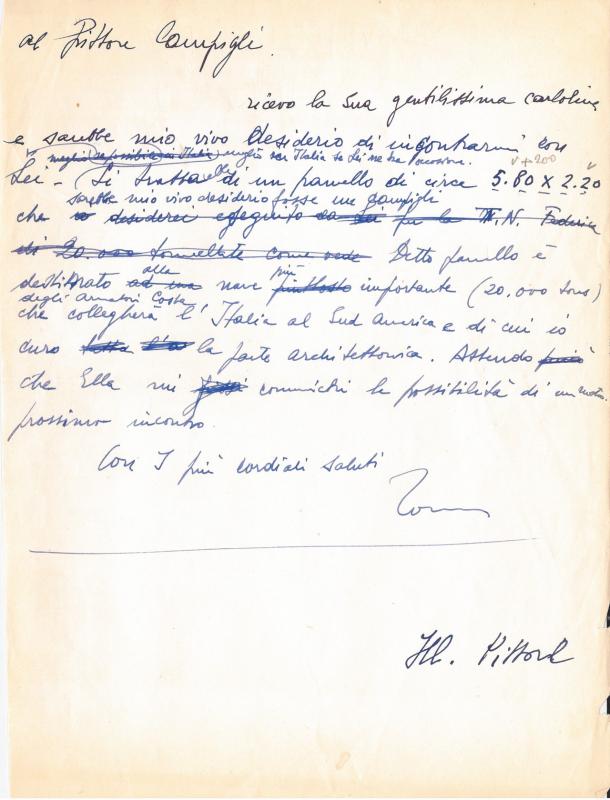 al Pittore Campigli.
ricevo la Sua gentilissima cartolina
e sarebbe mio vivo desiderio di incontrarmi con
meglio se possibile in Italia meglio in Italia se Lei ne ha
v + 200
Lei - Si tratta di un pannello di circa 5.80 X 2.20
sarebbe mio vivo desiderio fosse un Campigli
che desiderei eseguito da Lei per la M.N. Federica
di 20.000 tonnellate come vede Detto pannello è
alla più
destinato ad una nave piuttosto importante (20.000 tons)
degli Armatori Costa
che collegherà l'Italia al Sud America e di cui io
curo tutta la parte architettonica. Attendo
che Ella mi comunichi la possibilità di un nostro
prossimo incontro.
Con I più cordiali saluti
Ill. Pittore